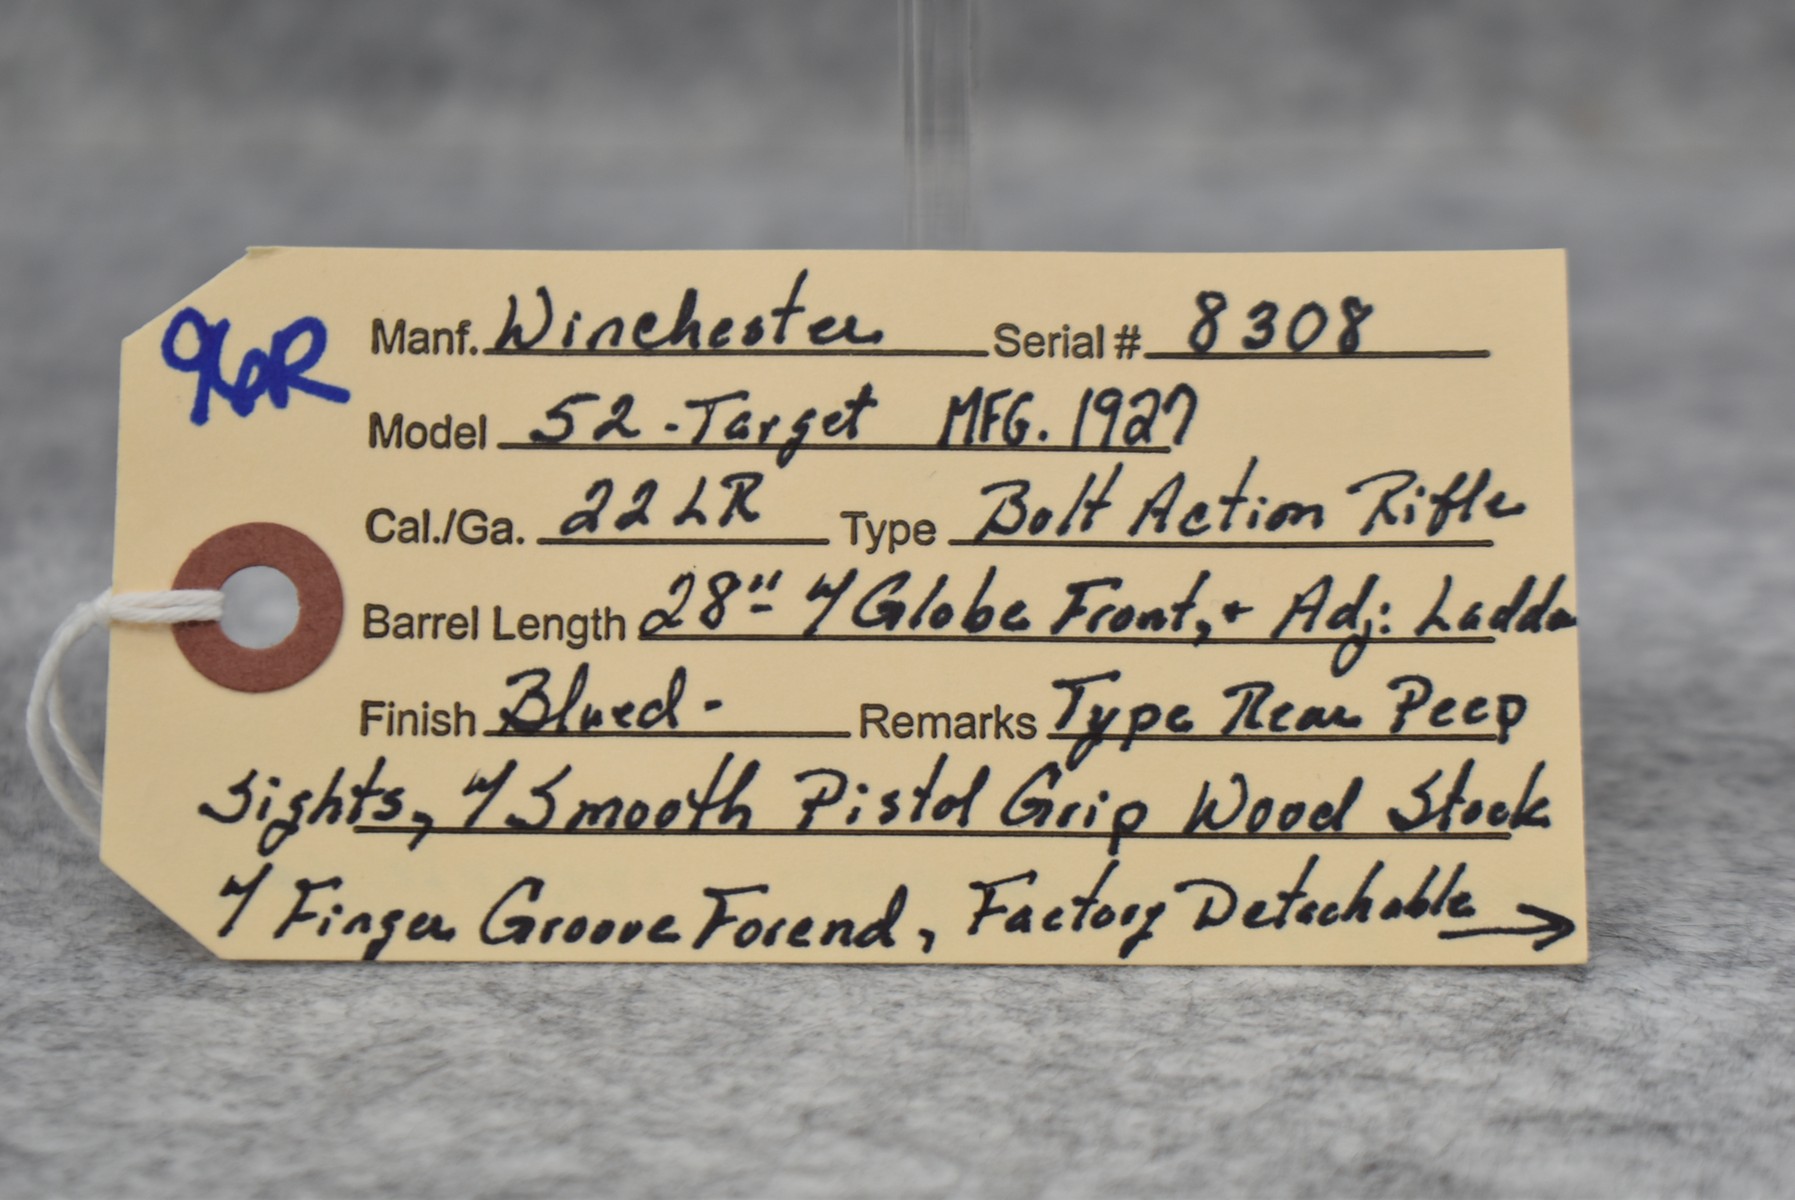 96R
Manf. Winchester Serial # 8308
Model 52-Target MFG. 1927
Cal./Ga. 22 LR Type Bolt Action Rifle
Barrel Length 28" w/ Globe Front, + Adj: Ladder
Finish Blued- Remarks Type Rear Peep
Sights, w/ Smooth Pistol Grip Wood Stock
w/ Finger Groove Forend, Factory Detachable →